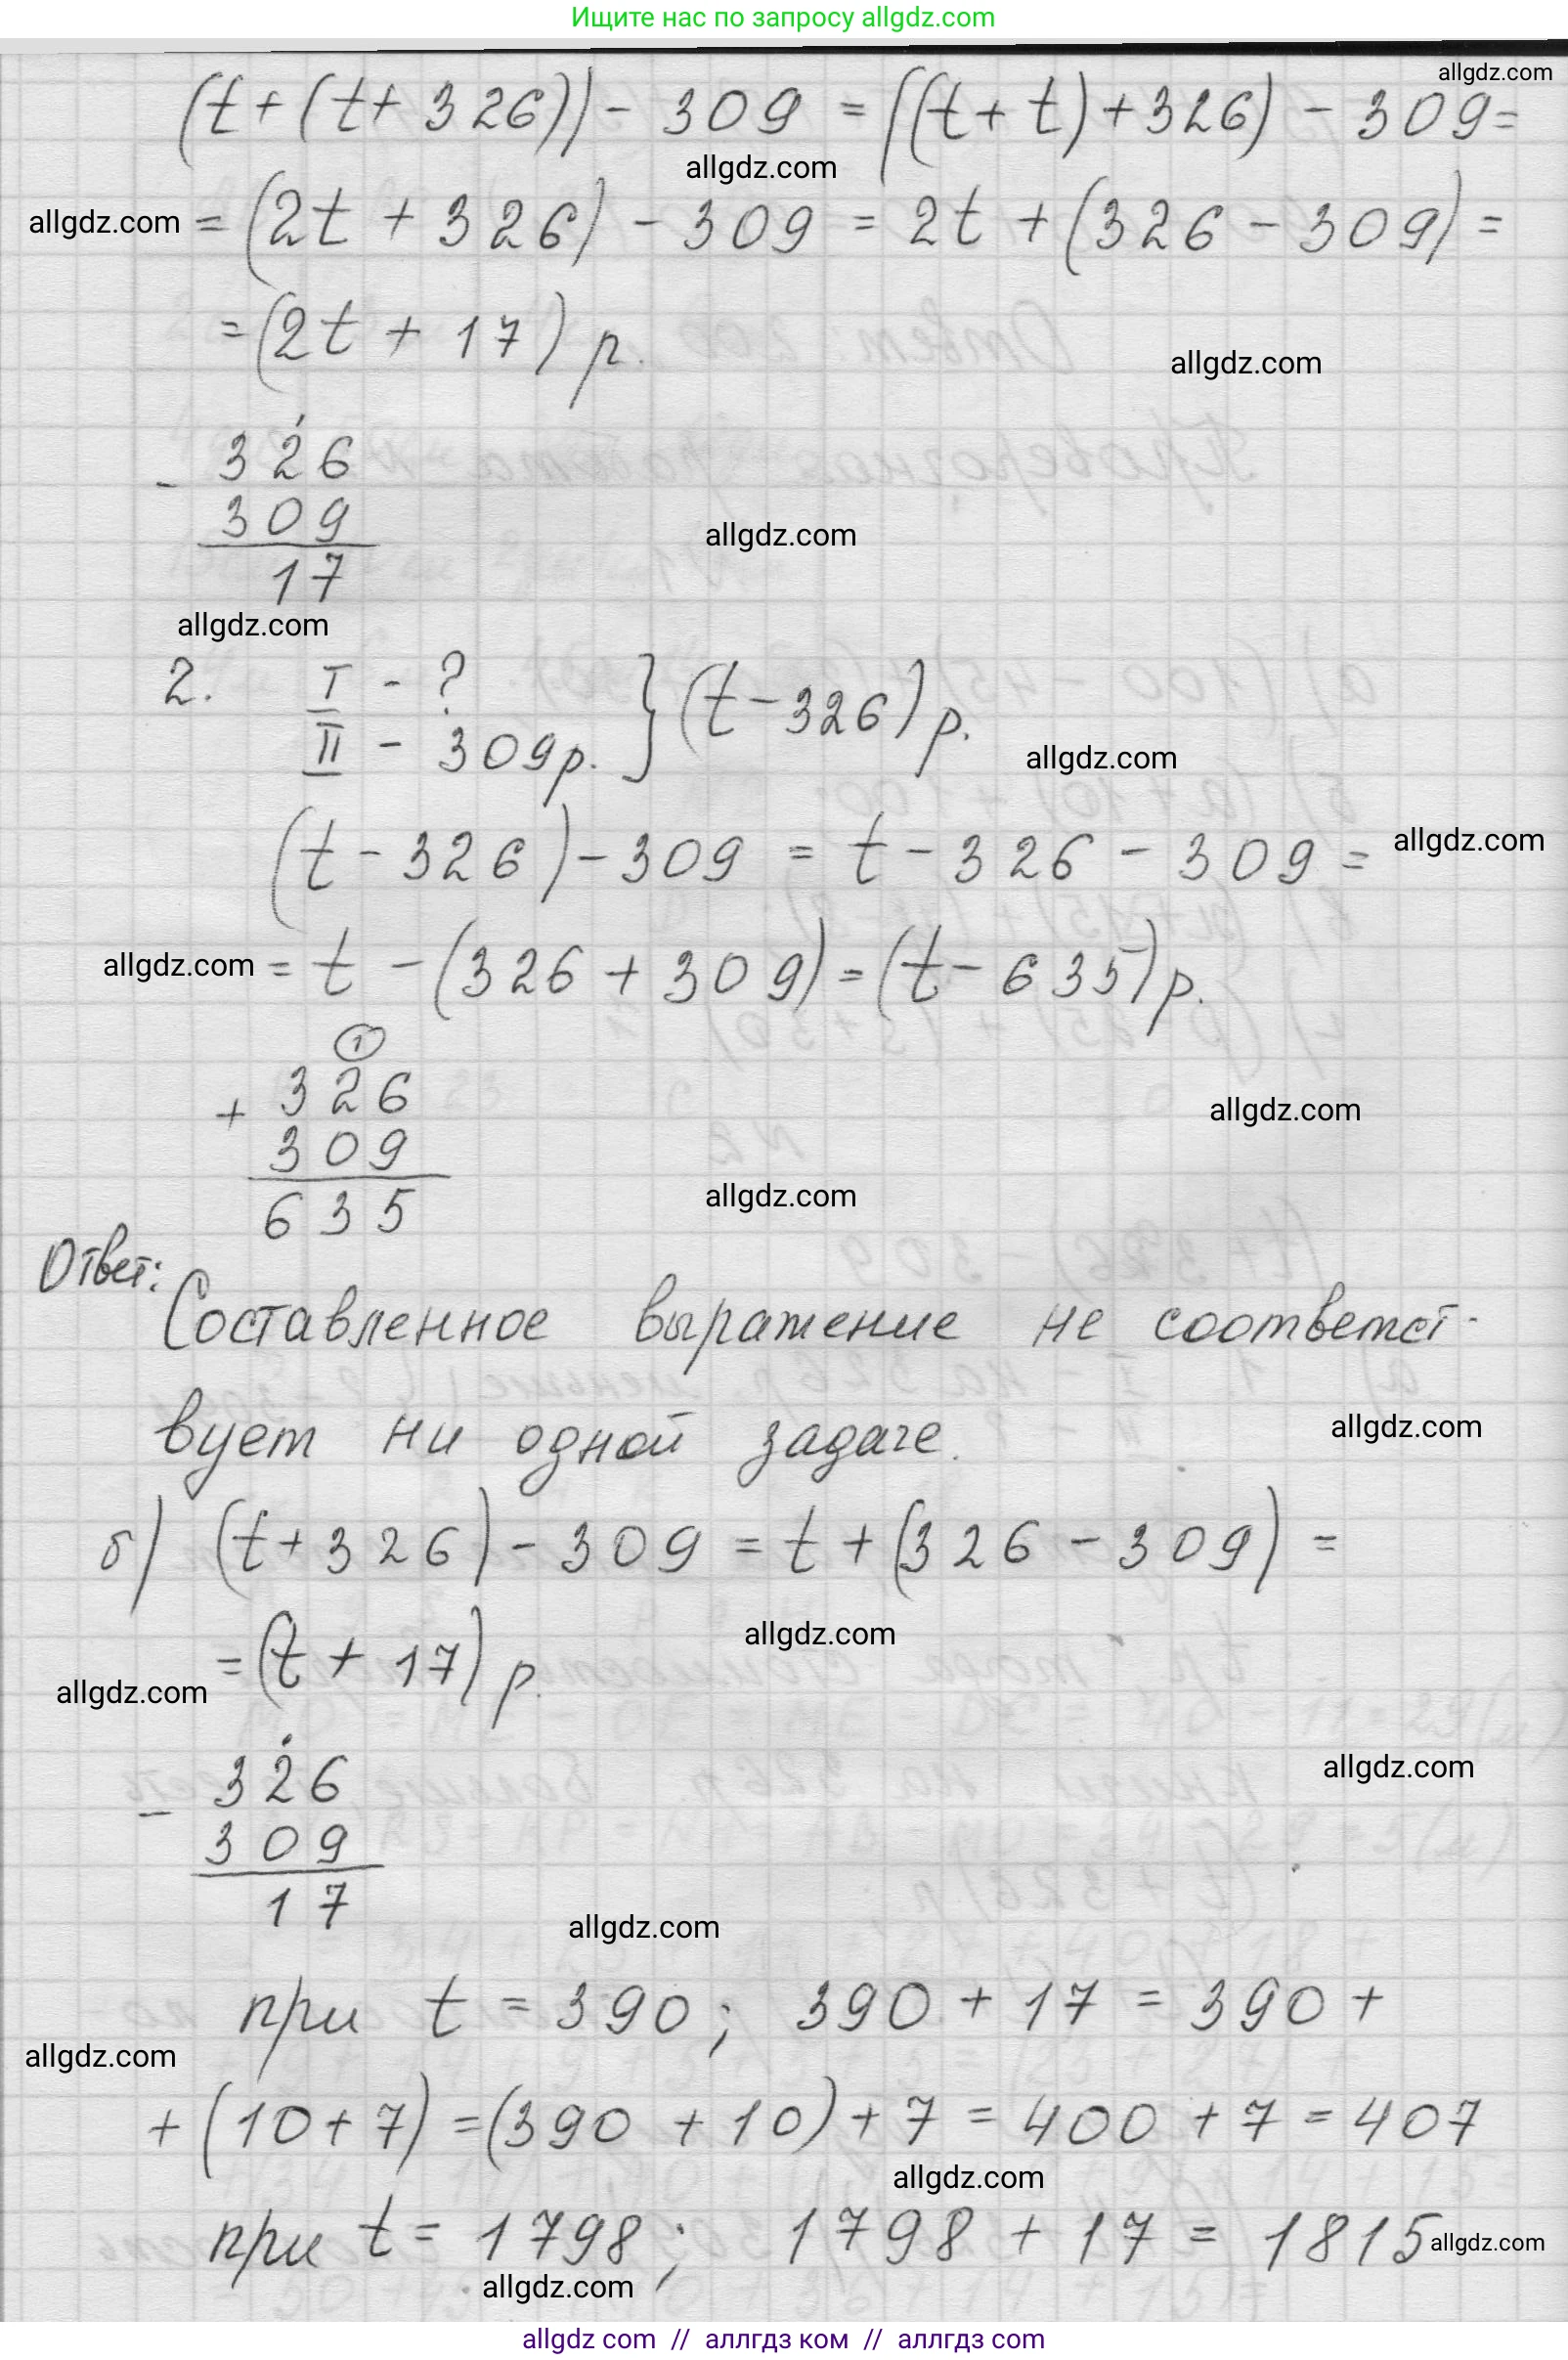 Ищите нас по запросу allgdz.com
allgdz.com
(t+(t+326))-309=((t+t)+326)-309=
allgdz.com
allgdz.com =(2t+326)-309=2t+(326-309)=
=(2t+17) р.
allgdz.com
326
- 309
17
allgdz.com
allgdz.com
2. I - ?
II - 309р. } (t-326) р.
allgdz.com
(t-326)-309=t-326-309=
allgdz.com
allgdz.com =t-(326+309)=(t-635) р.
1
+ 326
309
635
allgdz.com
allgdz.com
Ответ:
Составленное выражение не соответст-
вует ни одной задаче.
allgdz.com
б) (t+326)-309=t+(326-309)=
=(t+17) р.
allgdz.com
allgdz.com
326
- 309
17
allgdz.com
allgdz.com
при t=390; 390+17=390+
allgdz.com
+(10+7)=(390+10)+7=400+7=407
allgdz.com
при t=1798; 1798+17=1815
allgdz.com
allgdz.com
allgdz com // аллгдз ком // аллгдз com